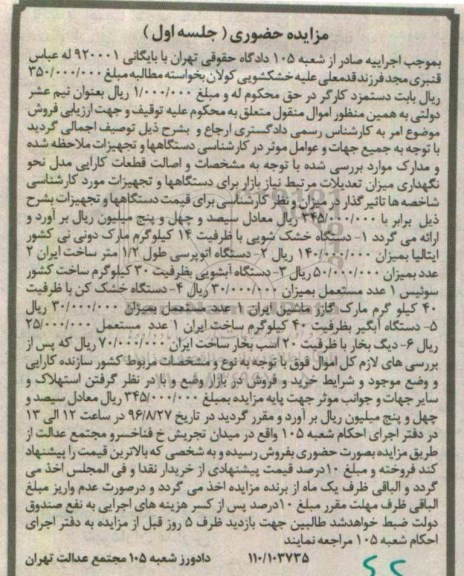 مزایده حضوری ( جلسه اول )
بموجب اجراییه صادر از شعبه ۱۰۵ دادگاه حقوقی تهران با بایگانی ۹۲۰۰۰۱ له عباس
قنبری مجد فرزند قدمعلی علیه خشکشویی کولان بخواسته مطالبه مبلغ ۳۵۰/۰۰۰/۰۰۰
ریال بابت دستمزد کارگر در حق محکوم له و مبلغ ۱/۰۰۰/۰۰۰ ریال بعنوان نیم عشر
دولتی به همین منظور اموال منقول متعلق به محکوم علیه توقیف و جهت ارزیابی فروش
موضوع امر به کارشناس رسمی دادگستری ارجاع و بشرح ذیل توصیف اجمالی گردید
با توجه به جمیع جهات و عوامل موثر در کارشناسی دستگاهها و تجهیزات ملاحظه شده
و مدارک موارد بررسی شده با توجه به مشخصات و اصالت قطعات کارایی مدل نحو
نگهداری میزان تعدیلات مرتبط نیاز بازار برای دستگاهها و تجهیزات مورد کارشناسی
شاخصه ها تاثیرگذار در میزان و نظر کارشناسی برای قیمت دستگاهها و تجهیزات بشرح
ذیل برابر با ۳۴۵/۰۰۰/۰۰۰ ریال معادل سیصد و چهل و پنج میلیون ریال بر آورد و
ارائه می گردد ۱- دستگاه خشک شویی با ظرفیت ۱۴ کیلوگرم مارک دونی نی کشور
ایتالیا بمیزان ۱۴۰/۰۰۰/۰۰۰ ریال ۲- دستگاه اتوپرسی طول ۱/۲ متر ساخت ایران ۲
عدد بمیزان ۵۰/۰۰۰/۰۰۰ ریال ۳- دستگاه آبشویی بظرفیت ۳۰ کیلوگرم ساخت کشور
سوئیس ۱ عدد مستعمل بمیزان ۳۰/۰۰۰/۰۰۰ ریال ۴- دستگاه خشک کن با ظرفیت
۴۰ کیلو گرم مارک گازژ ماشین ایران ۱ عدد مستعمل بمیزان ۳۰/۰۰۰/۰۰۰ ریال
۵- دستگاه آبگیر بظرفیت ۴۰ کیلوگرم ساخت ایران ۱ عدد مستعمل ۲۵/۰۰۰/۰۰۰
ریال ۶- دیگ بخار با ظرفیت ۲۰ اسب بخار ساخت ایران ۷۰/۰۰۰/۰۰۰ ریال که پس از
بررسی های لازم کل اموال فوق با توجه به نوع و مشخصات مربوط کشور سازنده کارایی
و وضع موجود و شرایط خرید و فروش در بازار وضع و با در نظر گرفتن استهلاک و
سایر جهات و جوانب موثر جهت پایه مزایده بمبلغ ۳۴۵/۰۰۰/۰۰۰ ریال معادل سیصد و
چهل و پنج میلیون ریال بر آورد و مقرر گردید در تاریخ ۹۶/۸/۲۷ در ساعت ۱۲ الی ۱۳
در دفتر اجرای احکام شعبه ۱۰۵ واقع در میدان تجریش خ فناخسرو مجتمع عدالت از
طریق مزایده بصورت حضوری بفروش رسیده و به شخصی که بالاترین قیمت را پیشنهاد
کند فروخته و مبلغ ۱۰درصد قیمت پیشنهادی از خریدار نقدا و فی المجلس اخذ می
گردد و الباقی ظرف یک ماه از برنده مزایده اخذ می گردد و درصورت عدم واریز مبلغ
الباقی ظرف مهلت مقرر مبلغ ۱۰درصد پس از کسر هزینه های اجرایی به نفع صندوق
دولت ضبط خواهدشد طالبین جهت بازدید ظرف ۵ روز قبل از مزایده به دفتر اجرای
احکام شعبه ۱۰۵ مراجعه نمایند
۱۱۰/۱۰۳۷۳۵ دادورز شعبه ۱۰۵ مجتمع عدالت تهران